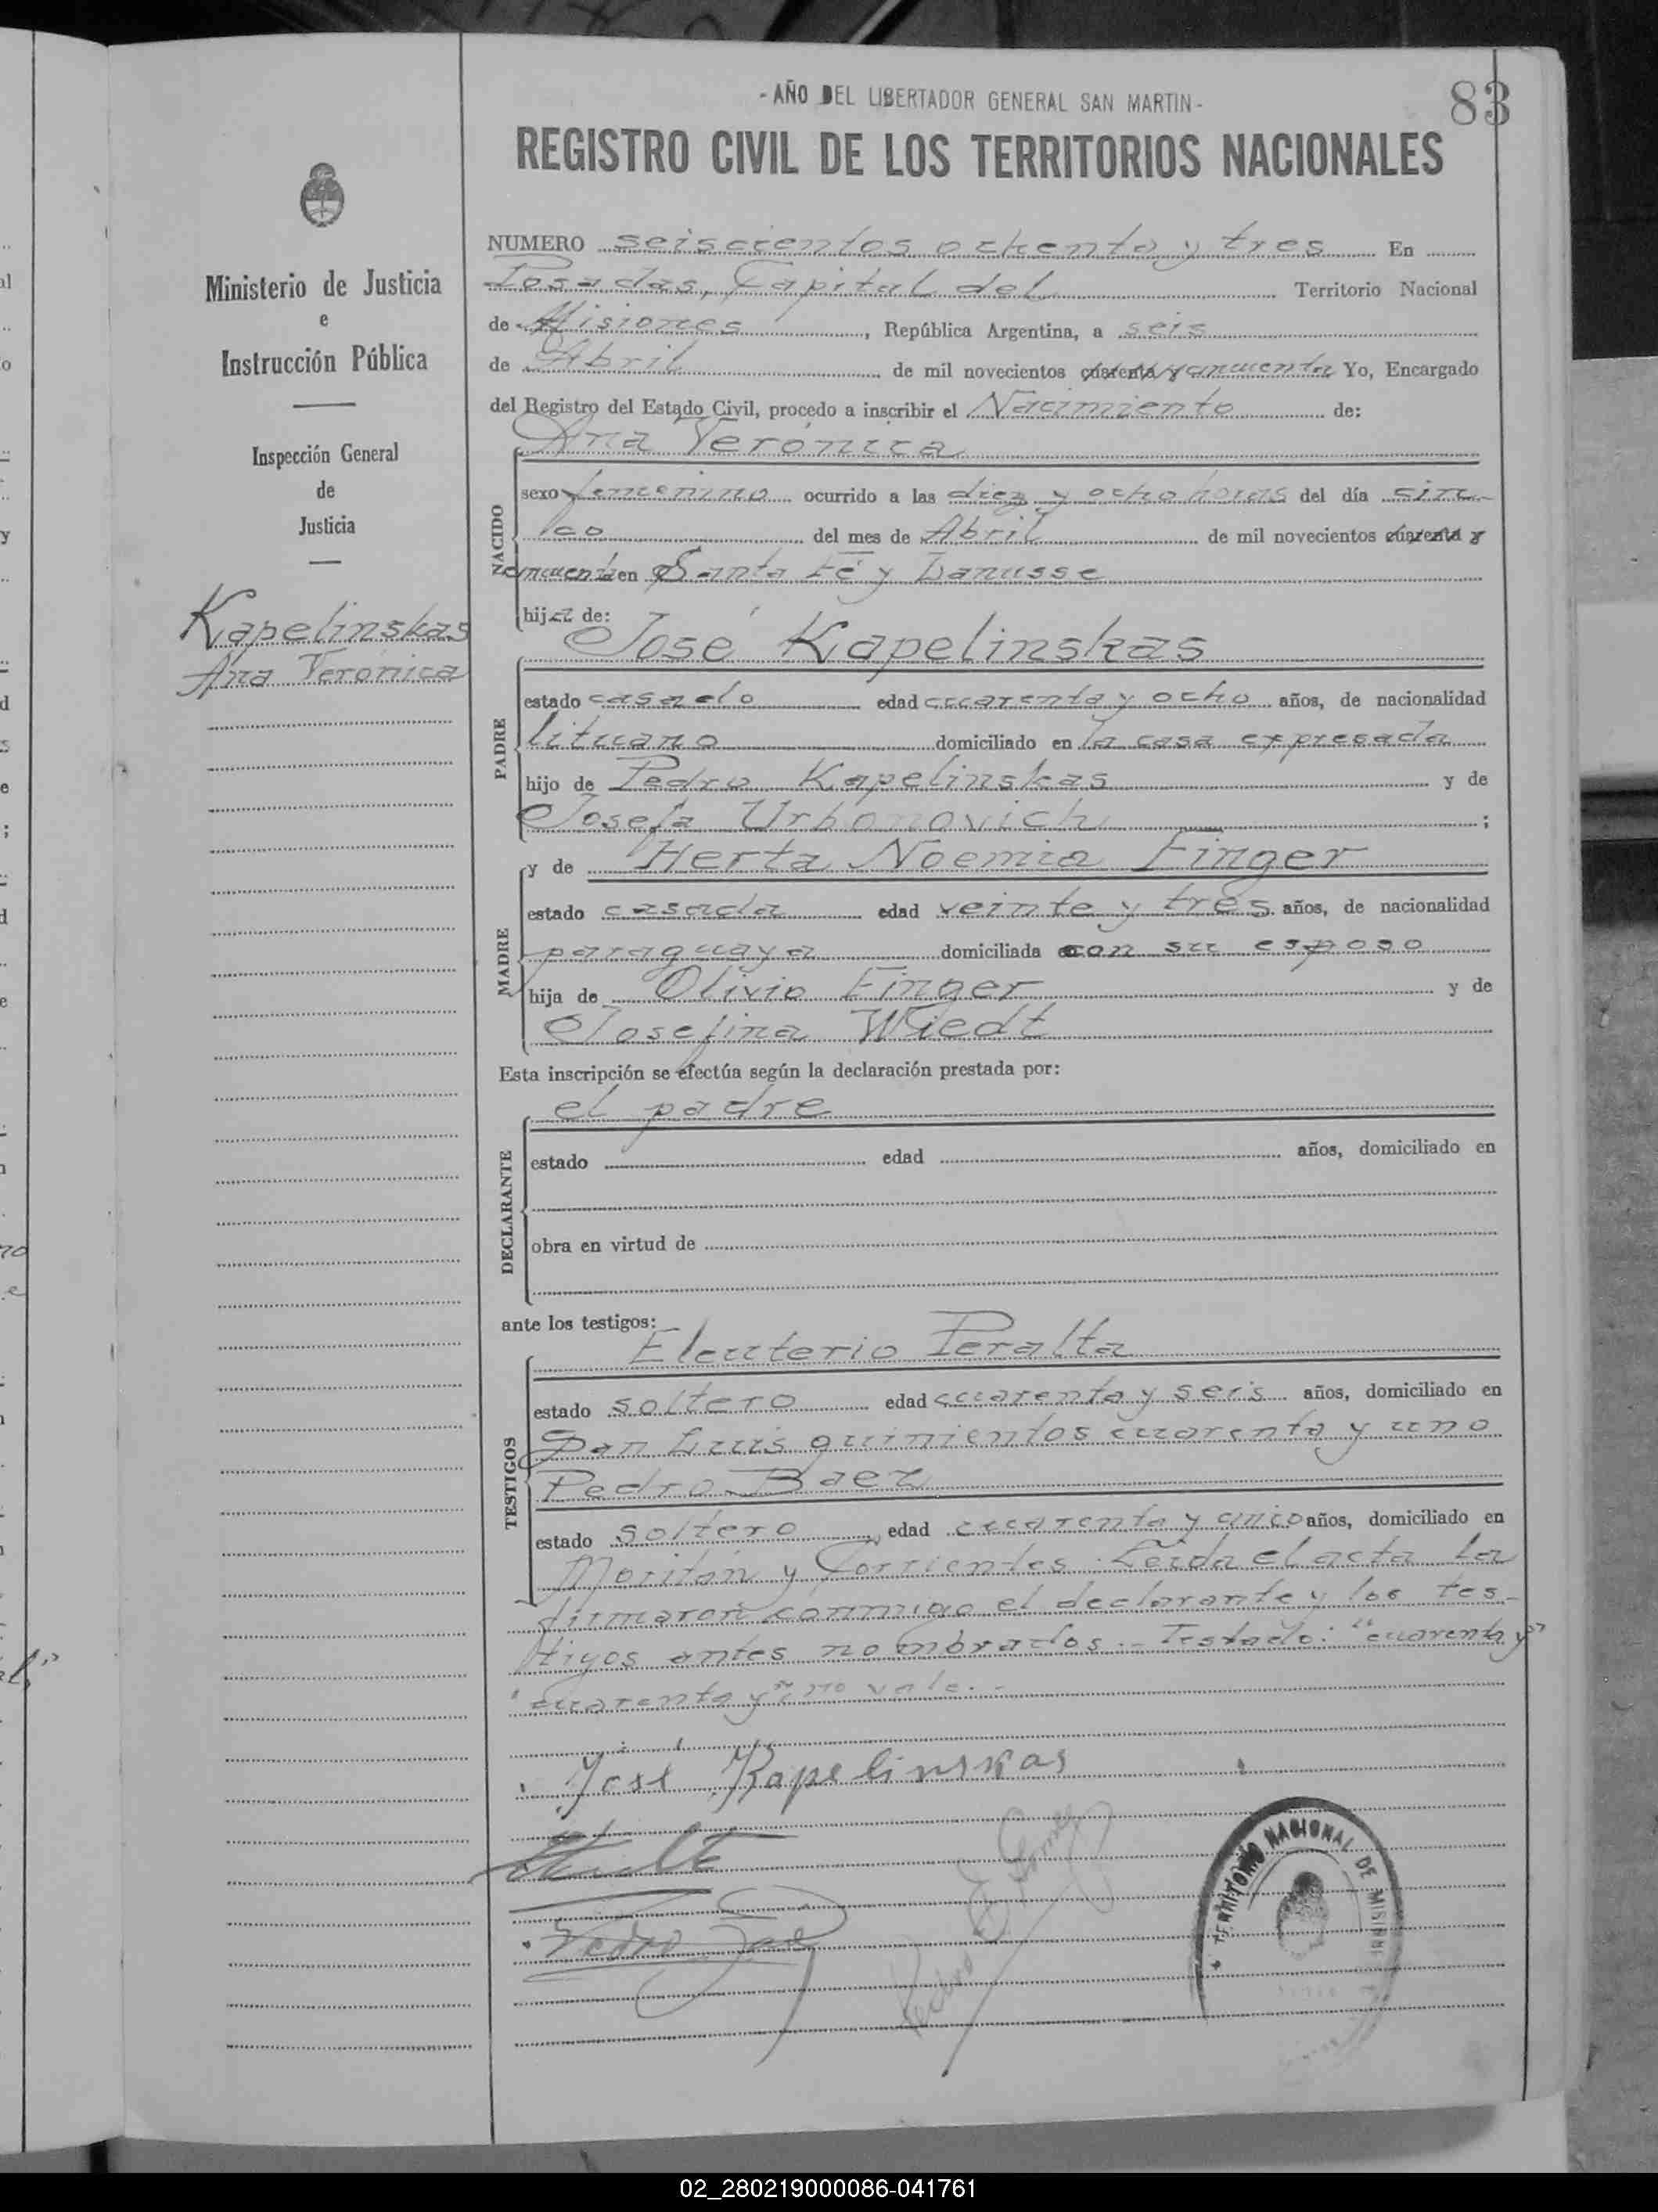 - AÑO DEL LIBERTADOR GENERAL SAN MARTIN -
83
REGISTRO CIVIL DE LOS TERRITORIOS NACIONALES
Ministerio de Justicia
e
Instrucción Pública
Inspección General
de
Justicia
Kapelinskas
Ana Verónica
NUMERO seiscientos ochenta y tres En
Posadas, Capital del Territorio Nacional
de Misiones, República Argentina, a seis
de Abril de mil novecientos cuarenta y cincuenta Yo, Encargado
del Registro del Estado Civil, procedo a inscribir el Nacimiento de:
Ana Verónica
NACIDO
sexo femenino ocurrido a las diez y ocho horas del día cin-
co del mes de Abril de mil novecientos cuarenta y
cincuenta en Santa Fé y Danusse
hija de:
José Kapelinskas
PADRE
estado casado edad cuarenta y ocho años, de nacionalidad
lituano domiciliado en la casa expresada
hijo de Pedro Kapelinskas y de
Josefa Urbonovich ;
y de Herta Noemia Finger
MADRE
estado casada edad veinte y tres años, de nacionalidad
paraguaya domiciliada con su esposo
hija de Olivio Finger y de
Josefina Wiedt
Esta inscripción se efectúa según la declaración prestada por:
el padre
DECLARANTE
estado edad años, domiciliado en
obra en virtud de
ante los testigos:
Eleuterio Peralta
TESTIGOS
estado soltero edad cuarenta y seis años, domiciliado en
San Luis quinientos cuarenta y uno
Pedro Baez
estado soltero, edad cuarenta y cinco años, domiciliado en
Moritán y Corrientes. Leída el acta la
firmaron conmigo el declarante y los tes-
tigos antes nombrados.- Testado: "cuarenta y"
"cuarenta y": no vale.-
José Kapelinskas
Pedro Baez
Pedro E Gomez
TERRITORIO NACIONAL DE MISIONES
02_280219000086-041761